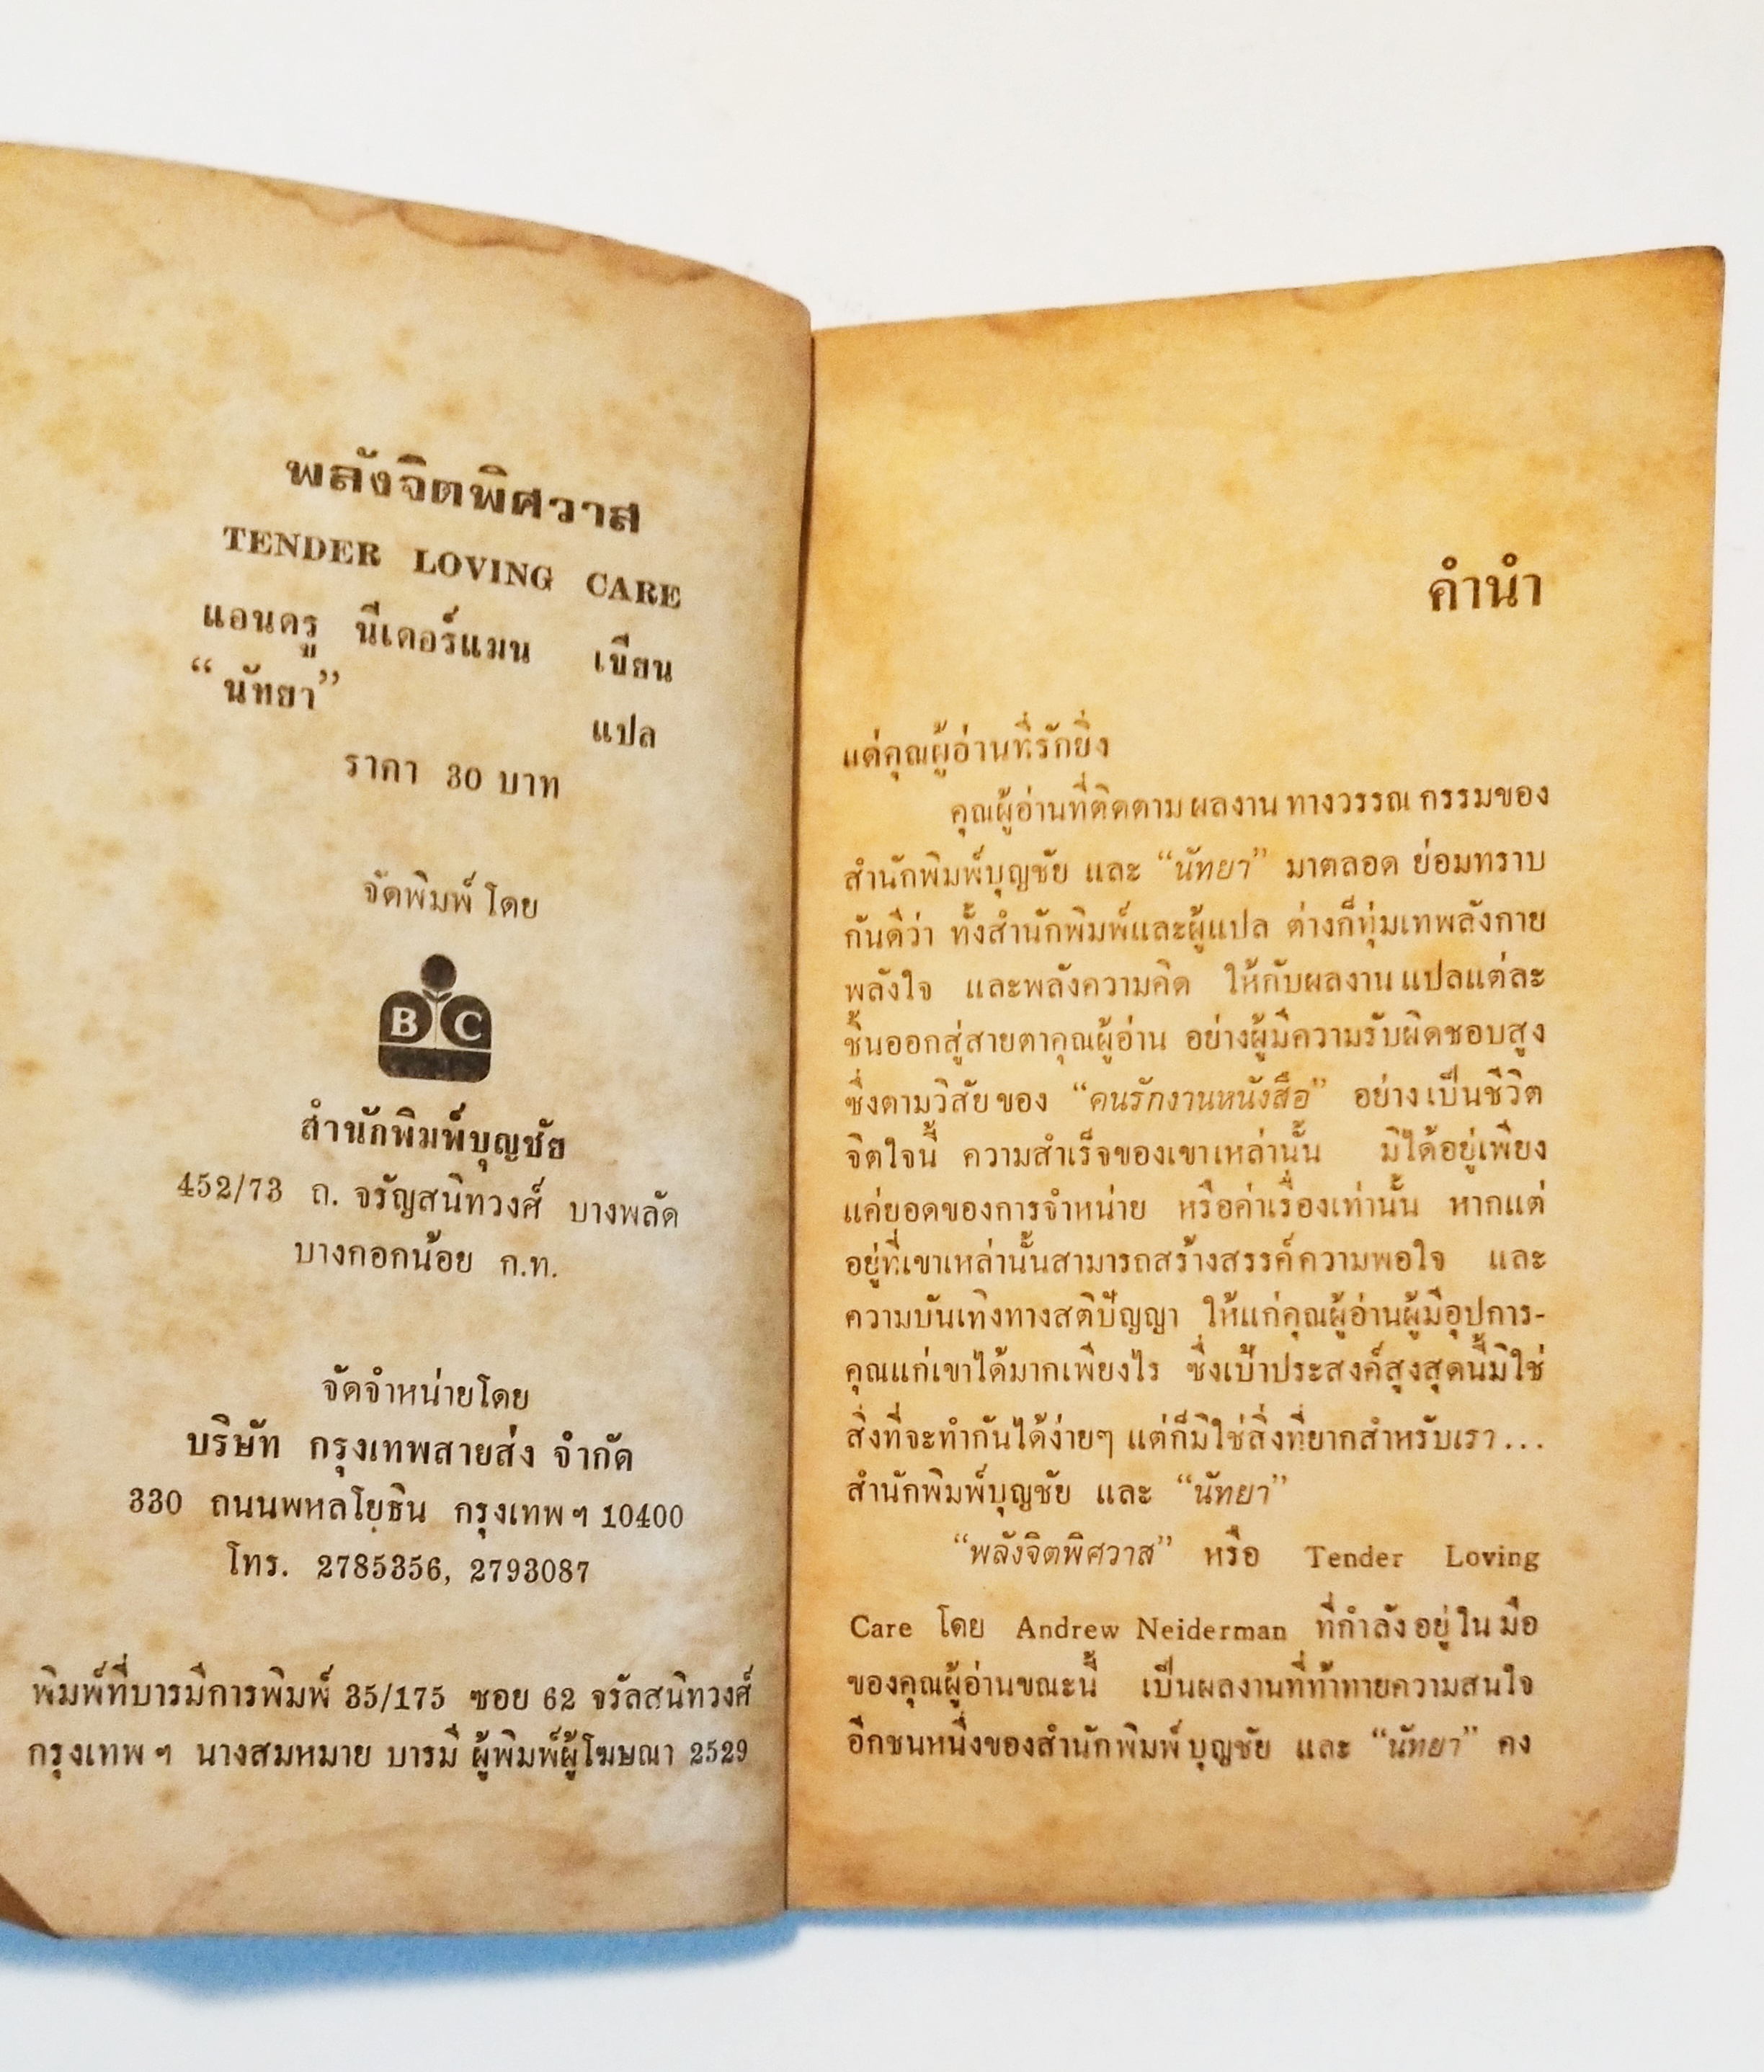 พลังจิตพิศวาส
TENDER LOVING CARE
แอนดรู นีเดอร์แมน เขียน
“นัทยา” แปล
ราคา 30 บาท
จัดพิมพ์โดย
BC
สำนักพิมพ์บุญชัย
452/73 ถ. จรัญสนิทวงศ์ บางพลัด
บางกอกน้อย ก.ท.
จัดจำหน่ายโดย
บริษัท กรุงเทพสายส่ง จำกัด
330 ถนนพหลโยธิน กรุงเทพฯ 10400
โทร. 2785356, 2793087
พิมพ์ที่บารมีการพิมพ์ 35/175 ซอย 62 จรัลสนิทวงศ์
กรุงเทพฯ นางสมหมาย บารมี ผู้พิมพ์ผู้โฆษณา 2529
คำนำ
แด่คุณผู้อ่านที่รักยิ่ง
คุณผู้อ่านที่ติดตามผลงานทางวรรณกรรมของ
สำนักพิมพ์บุญชัย และ “นัทยา” มาตลอด ย่อมทราบ
กันดีว่า ทั้งสำนักพิมพ์และผู้แปล ต่างก็ทุ่มเทพลังกาย
พลังใจ และพลังความคิด ให้กับผลงานแปลแต่ละ
ชิ้นออกสู่สายตาคุณผู้อ่าน อย่างผู้มีความรับผิดชอบสูง
ซึ่งตามวิสัยของ “คนรักงานหนังสือ” อย่างเป็นชีวิต
จิตใจนี้ ความสำเร็จของเขาเหล่านั้น มิได้อยู่เพียง
แค่ยอดของการจำหน่าย หรือค่าเรื่องเท่านั้น หากแต่
อยู่ที่เขาเหล่านั้นสามารถสร้างสรรค์ความพอใจ และ
ความบันเทิงทางสติปัญญา ให้แก่คุณผู้อ่านผู้มีอุปการ-
คุณแก่เขาได้มากเพียงไร ซึ่งเป้าประสงค์สูงสุดนี้มิใช่
สิ่งที่จะทำกันได้ง่ายๆ แต่ก็มิใช่สิ่งที่ยากสำหรับเรา...
สำนักพิมพ์บุญชัย และ “นัทยา”
“พลังจิตพิศวาส” หรือ Tender Loving
Care โดย Andrew Neiderman ที่กำลังอยู่ในมือ
ของคุณผู้อ่านขณะนี้ เป็นผลงานที่ท้าทายความสนใจ
อีกชนหนึ่งของสำนักพิมพ์บุญชัย และ “นัทยา” คง